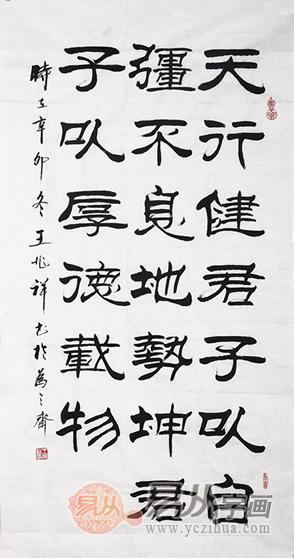 天行健君子以自
彊不息地勢坤君
子以厚德載物
時在辛卯冬王兆祥書於爲之齋
易从字画
www.yczihua.com